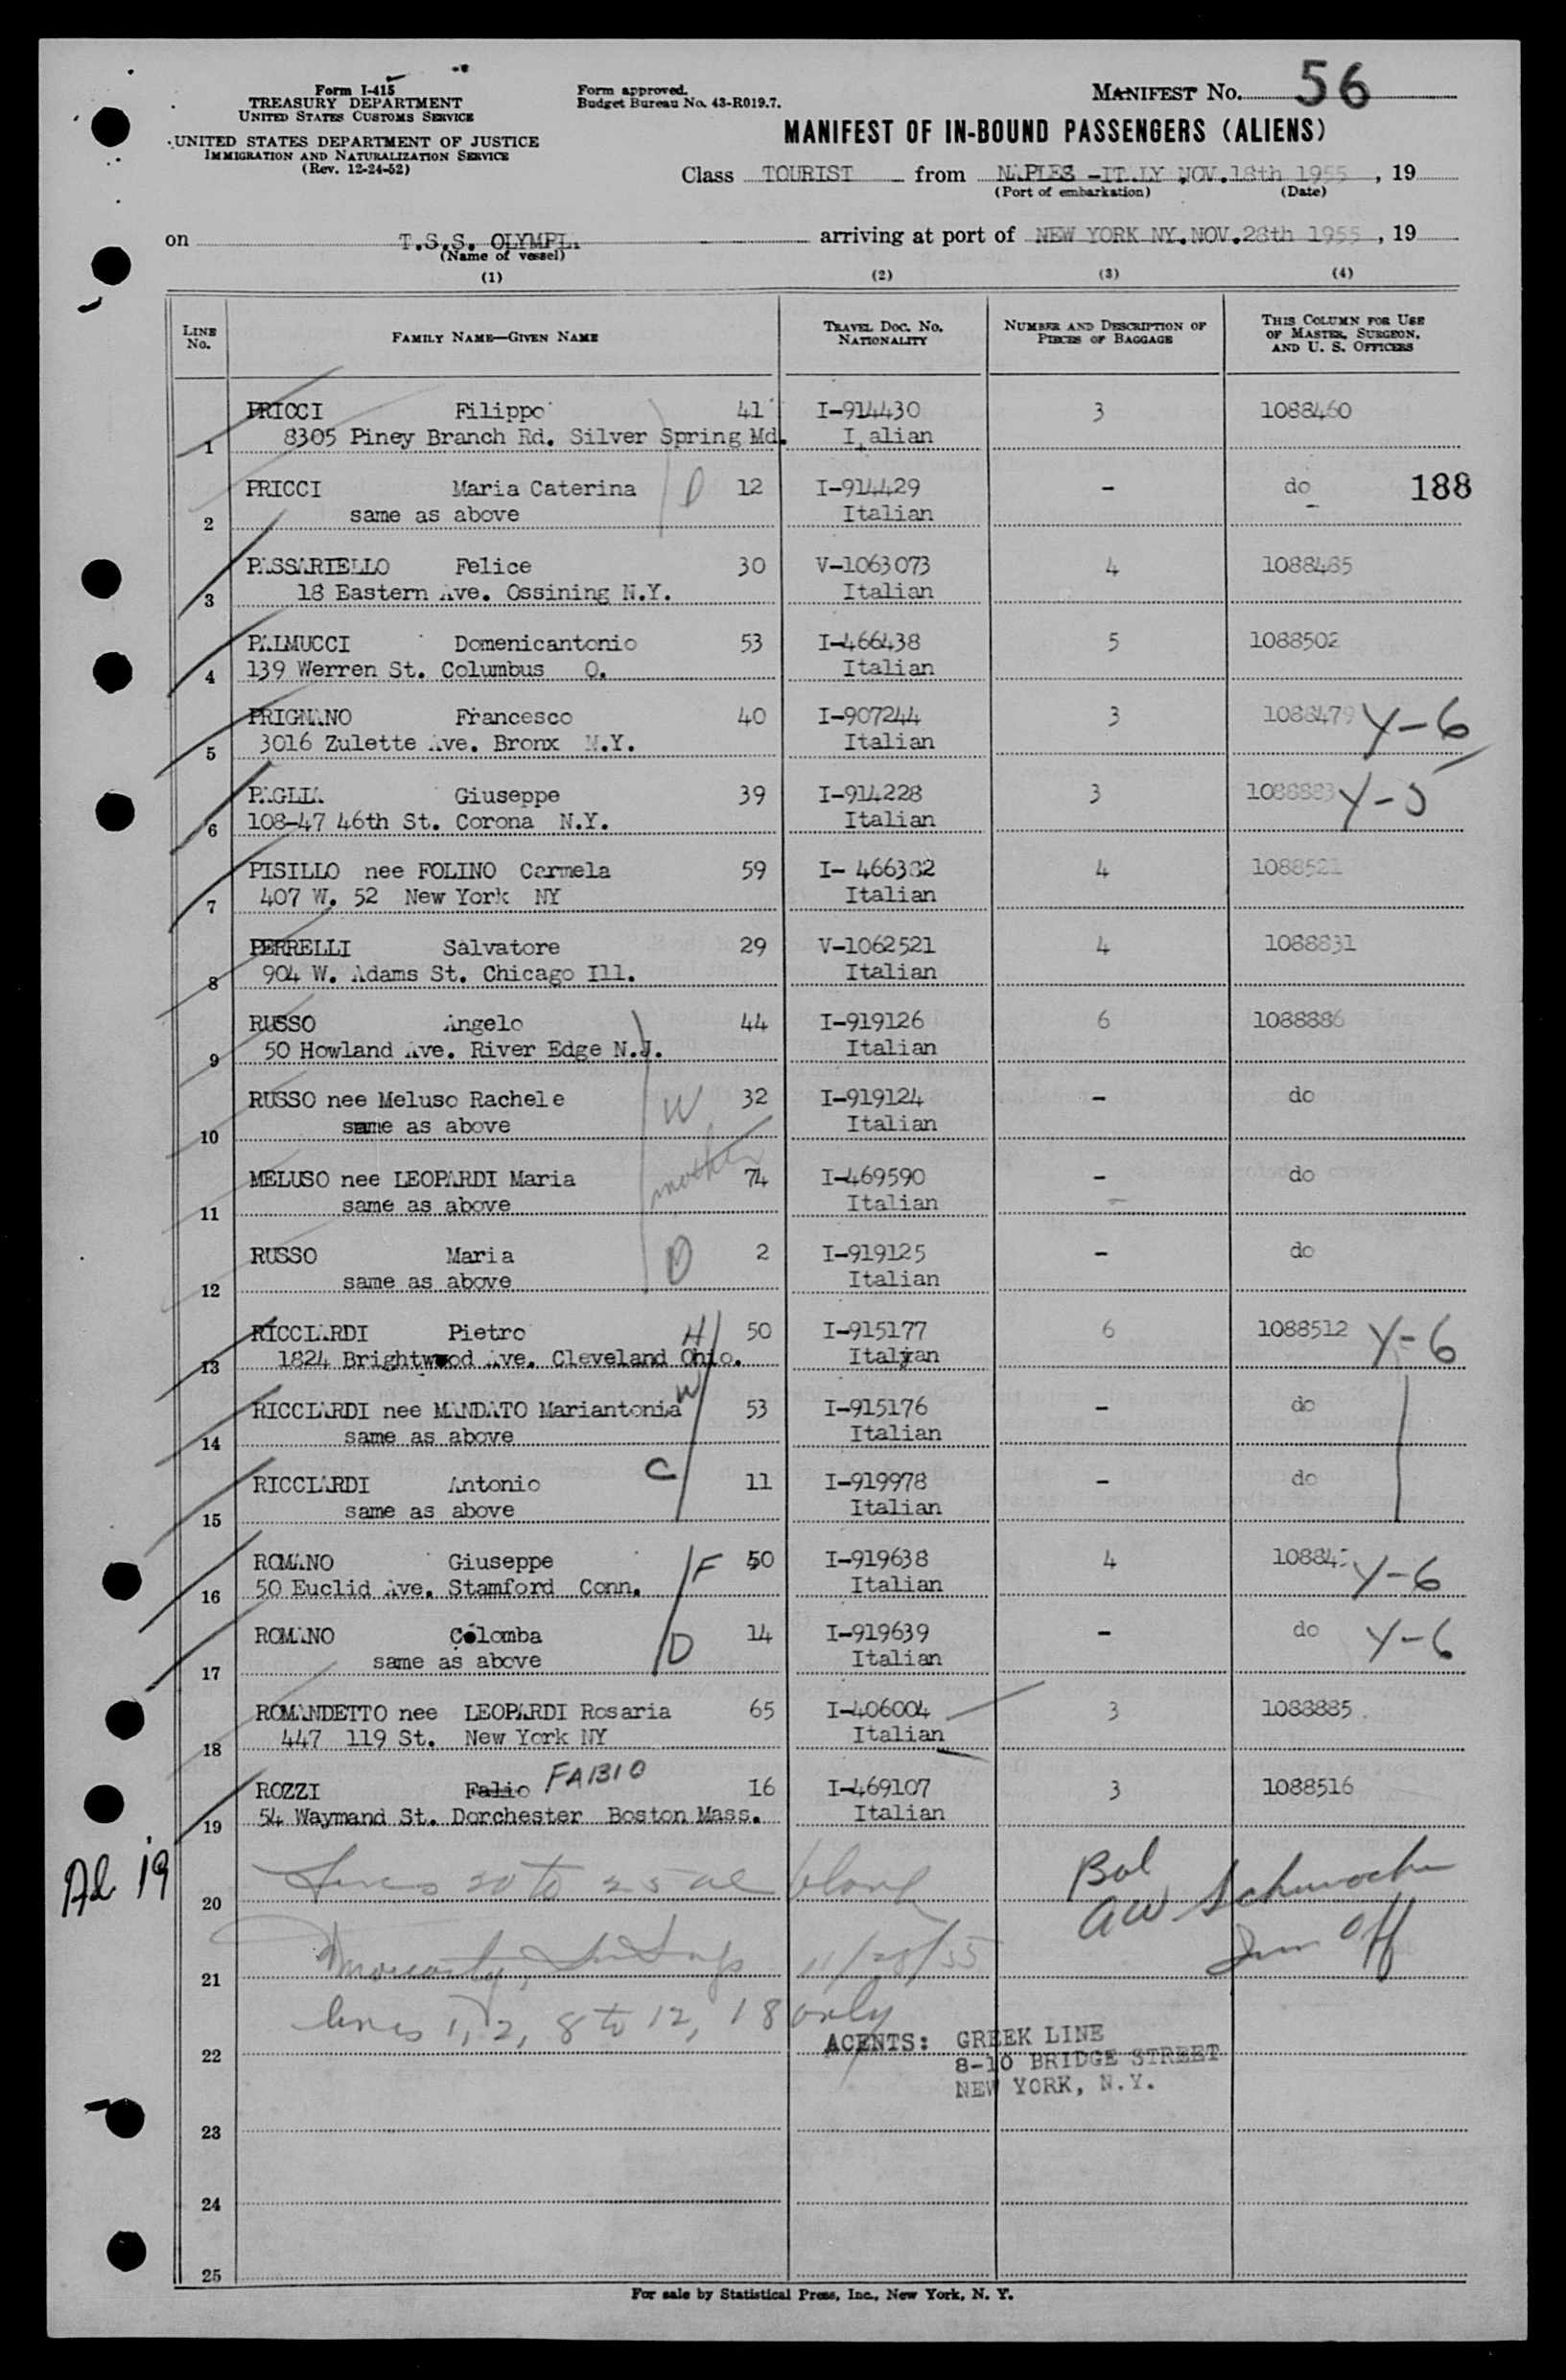 Form I-415
TREASURY DEPARTMENT
UNITED STATES CUSTOMS SERVICE
UNITED STATES DEPARTMENT OF JUSTICE
IMMIGRATION AND NATURALIZATION SERVICE
(Rev. 12-24-52)
Form approved.
Budget Bureau No. 43-R019.7.
MANIFEST NO. 56
MANIFEST OF IN-BOUND PASSENGERS (ALIENS)
Class TOURIST from NAPLES -ITALY NOV.18th 1955, 19
(Port of embarkation) (Date)
on T.S.S. OLYMPI. arriving at port of NEW YORK NY.NOV.28th 1955, 19
(Name of vessel)
(1) (2) (3) (4)
LINE NO. FAMILY NAME—GIVEN NAME TRAVEL DOC. NO. NATIONALITY NUMBER AND DESCRIPTION OF PIECES OF BAGGAGE THIS COLUMN FOR USE OF MASTER, SURGEON, AND U. S. OFFICERS
PRICCI Filippo 41 I-914430 3 1088460
1 8305 Piney Branch Rd. Silver Spring Md. I alian
PRICCI Maria Caterina D 12 I-914429 - do 188
2 same as above Italian
PASSARIELLO Felice 30 V-1063073 4 1088485
3 18 Eastern Ave. Ossining N.Y. Italian
PALMUCCI Domenicantonio 53 I-466438 5 1088502
4 139 Werren St. Columbus O. Italian
PRIGNANO Francesco 40 I-907244 3 1088479 Y-6
5 3016 Zulette Ave. Bronx N.Y. Italian
PAGLIA Giuseppe 39 I-914228 3 1088883 Y-5
6 108-47 46th St. Corona N.Y. Italian
PISILLO nee FOLINO Carmela 59 I- 466382 4 1088521
7 407 W. 52 New York NY Italian
PERRELLI Salvatore 29 V-1062521 4 1088831
8 904 W. Adams St. Chicago Ill. Italian
RUSSO Angelo 44 I-919126 6 1088886
9 50 Howland Ave. River Edge N.J. Italian
RUSSO nee Meluso Rachele W 32 I-919124 - do
10 same as above Italian
MELUSO nee LEOPARDI Maria mother 74 I-469590 - do
11 same as above Italian
RUSSO Maria D 2 I-919125 - do
12 same as above Italian
RICCIARDI Pietro H 50 I-915177 6 1088512 Y-6
13 1824 Brightwood Ave. Cleveland Ohio. Italian
RICCIARDI nee MANDATO Mariantonia W 53 I-915176 - do
14 same as above Italian
RICCIARDI Antonio C 11 I-919978 - do
15 same as above Italian
ROMANO Giuseppe F 50 I-919638 4 10884 Y-6
16 50 Euclid Ave. Stamford Conn. Italian
ROMANO Colomba D 14 I-919639 - do Y-6
17 same as above Italian
ROMANDETTO nee LEOPARDI Rosaria 65 I-406004 3 1088885
18 447 119 St. New York NY Italian
ROZZI Falio FABIO 16 I-469107 3 1088516
19 54 Waymand St. Dorchester Boston Mass. Italian
Ad 19
20 Lines 20 to 25 are blank Bal
AW Schumacher
Imm Off
21 11/28/55
22 lines 1, 2, 8 to 12, 18 only
AGENTS: GREEK LINE
8-10 BRIDGE STREET
NEW YORK, N.Y.
23
24
25
For sale by Statistical Press, Inc., New York, N. Y.